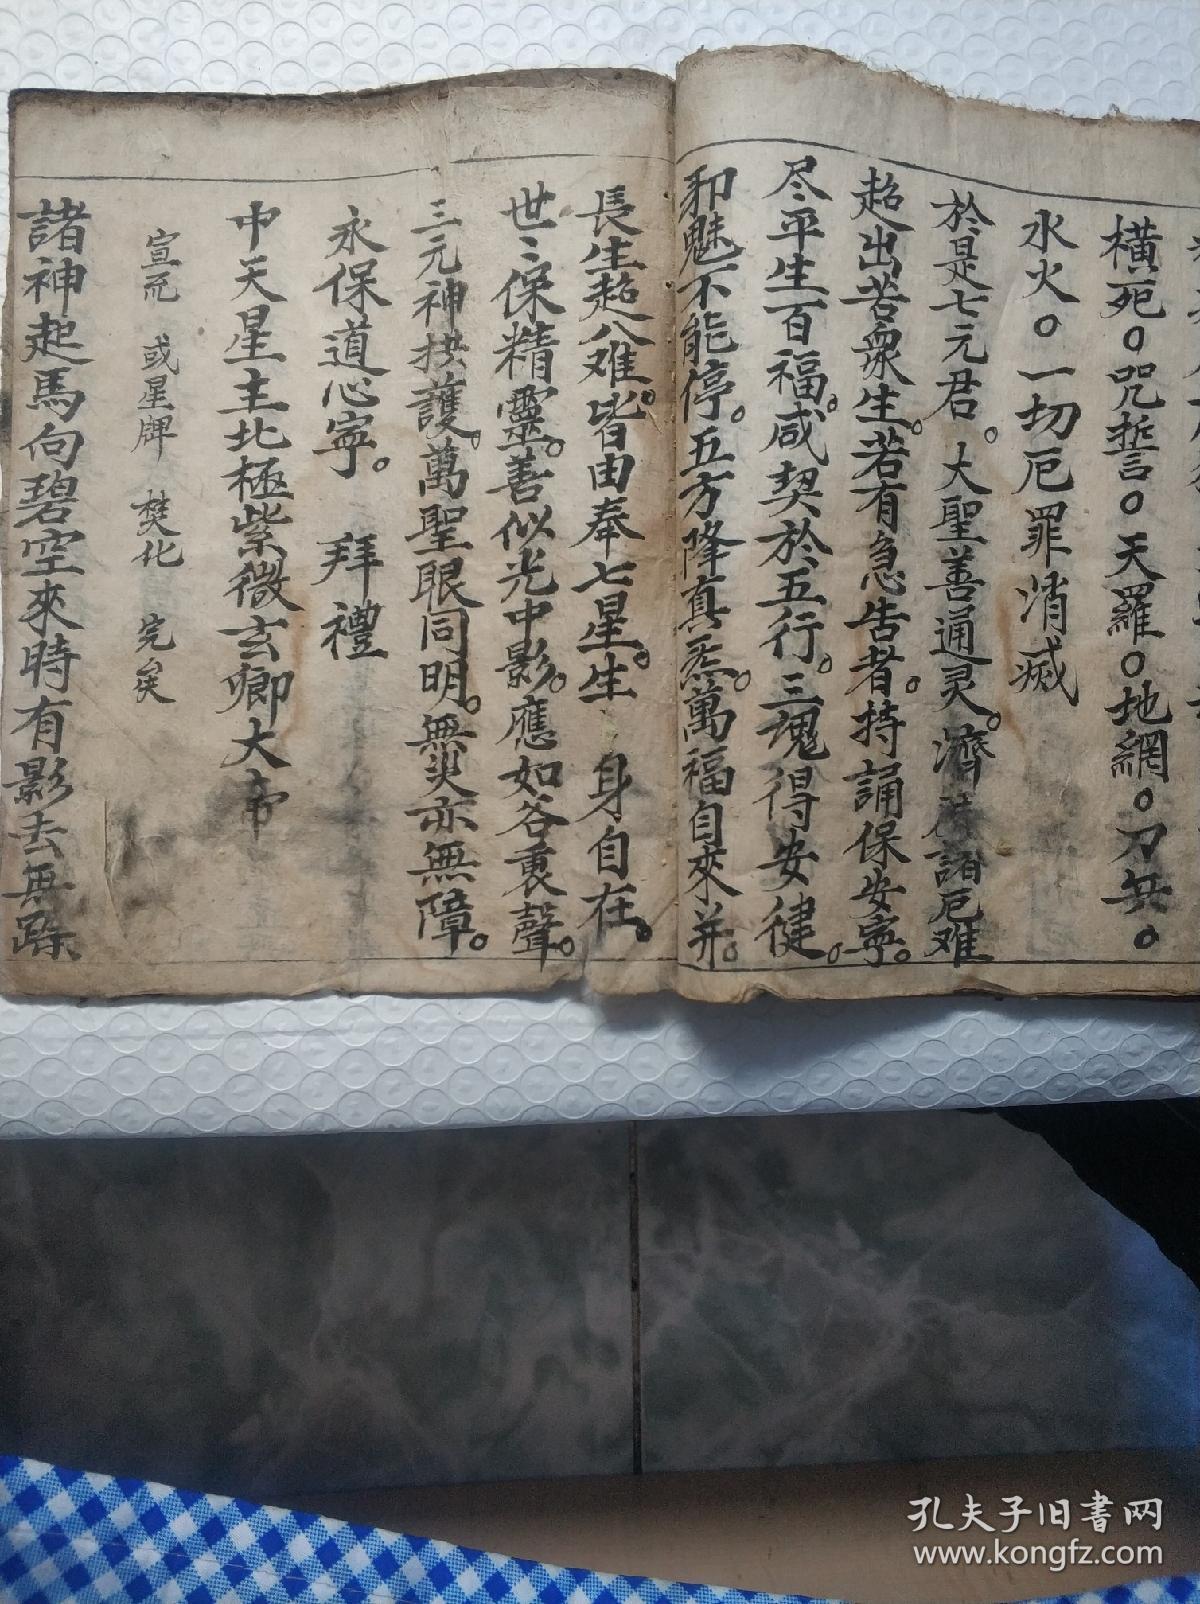 橫死。咒誓。天羅。地網。刀兵。
水火。一切厄罪消滅
於是七元君。大聖善通灵。濟諸厄难
超出苦衆生。若有急告者。持誦保安寧。
尽平生百福。咸契於五行。三魂得安健。
邪魅不能停。五方降真炁。萬福自來并。
長生超八难。皆由奉七星。生身自在。
世〻保精靈。善似光中影。應如谷裏聲。
三元神拱護。萬聖眼同明。無災亦無障。
永保道心寧。 拜禮
中天星主北極紫微玄卿大帝
宣疏 或星牌 焚化 完矣
諸神起馬向碧空來時有影去無踪
孔夫子旧书网
www.kongfz.com